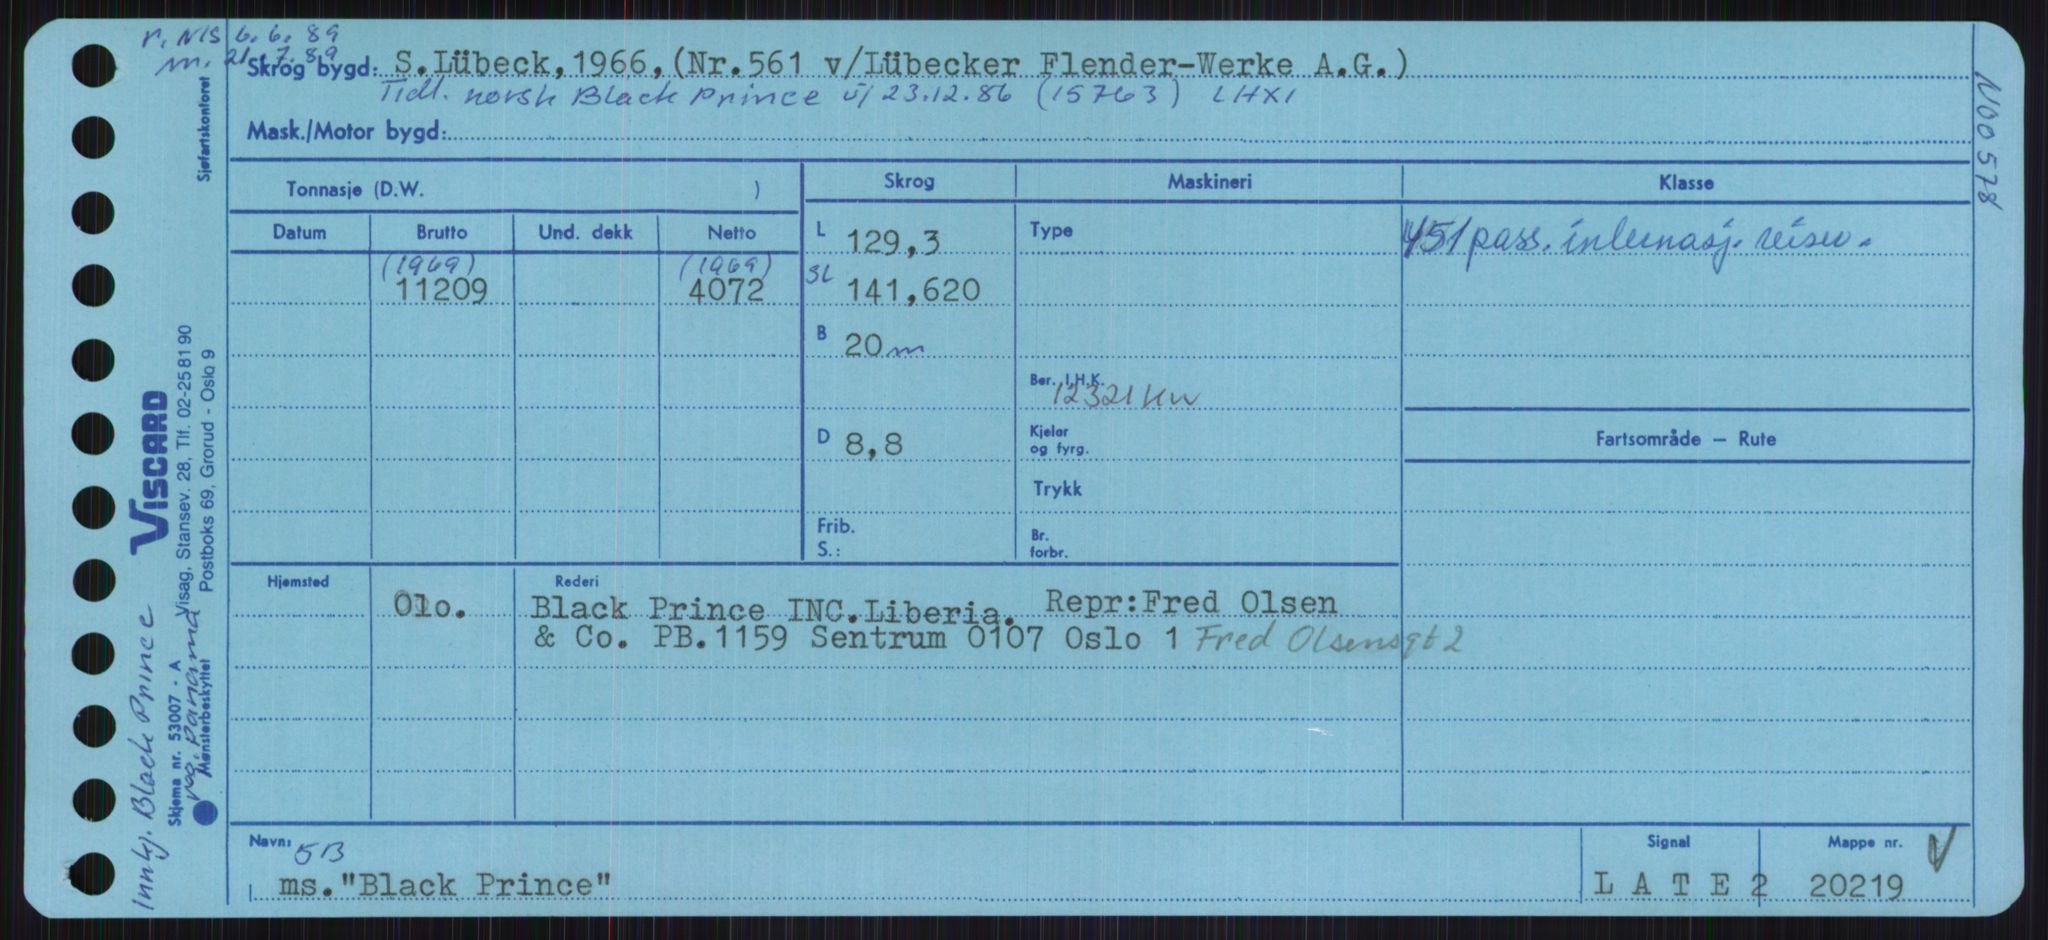 r. NIS 6.6.89
m. 21.7.89
Skrog bygd: S.Lübeck,1966,(Nr.561 v/Lübecker Flender-Werke A.G.)
Tidl. norsk Black Prince u/ 23.12.86 (15763) LHXI
Mask./Motor bygd:
Sjøfartskontoret
N00578
Tonnasje (D.W. )
Skrog
Maskineri
Klasse
Datum Brutto Und. dekk Netto
(1969) (1969)
11209 4072
L 129,3
SL 141,620
B 20 m
D 8,8
Frib.
S.:
Type
Ber. I.H.K.
12321 KW
Kjelar
og fyrg.
Trykk
Br.
forbr.
451 pass. internasj. reiser.
Fartsområde — Rute
Hjemsted Rederi
Olo. Black Prince INC.Liberia. Repr:Fred Olsen
& Co. PB.1159 Sentrum 0107 Oslo 1 Fred Olsensgt 2
Navn: 5B
ms."Black Prince"
Signal
L A T E 2
Mappe nr. V
20219
Innkj. Black Prince
VISCARD
Skjema nr. 53007 - A
Visag, Stansev. 28, Tlf. 02-25 81 90
Postboks 69, Grorud - Oslo 9
Panama
Mønsterbeskyttet